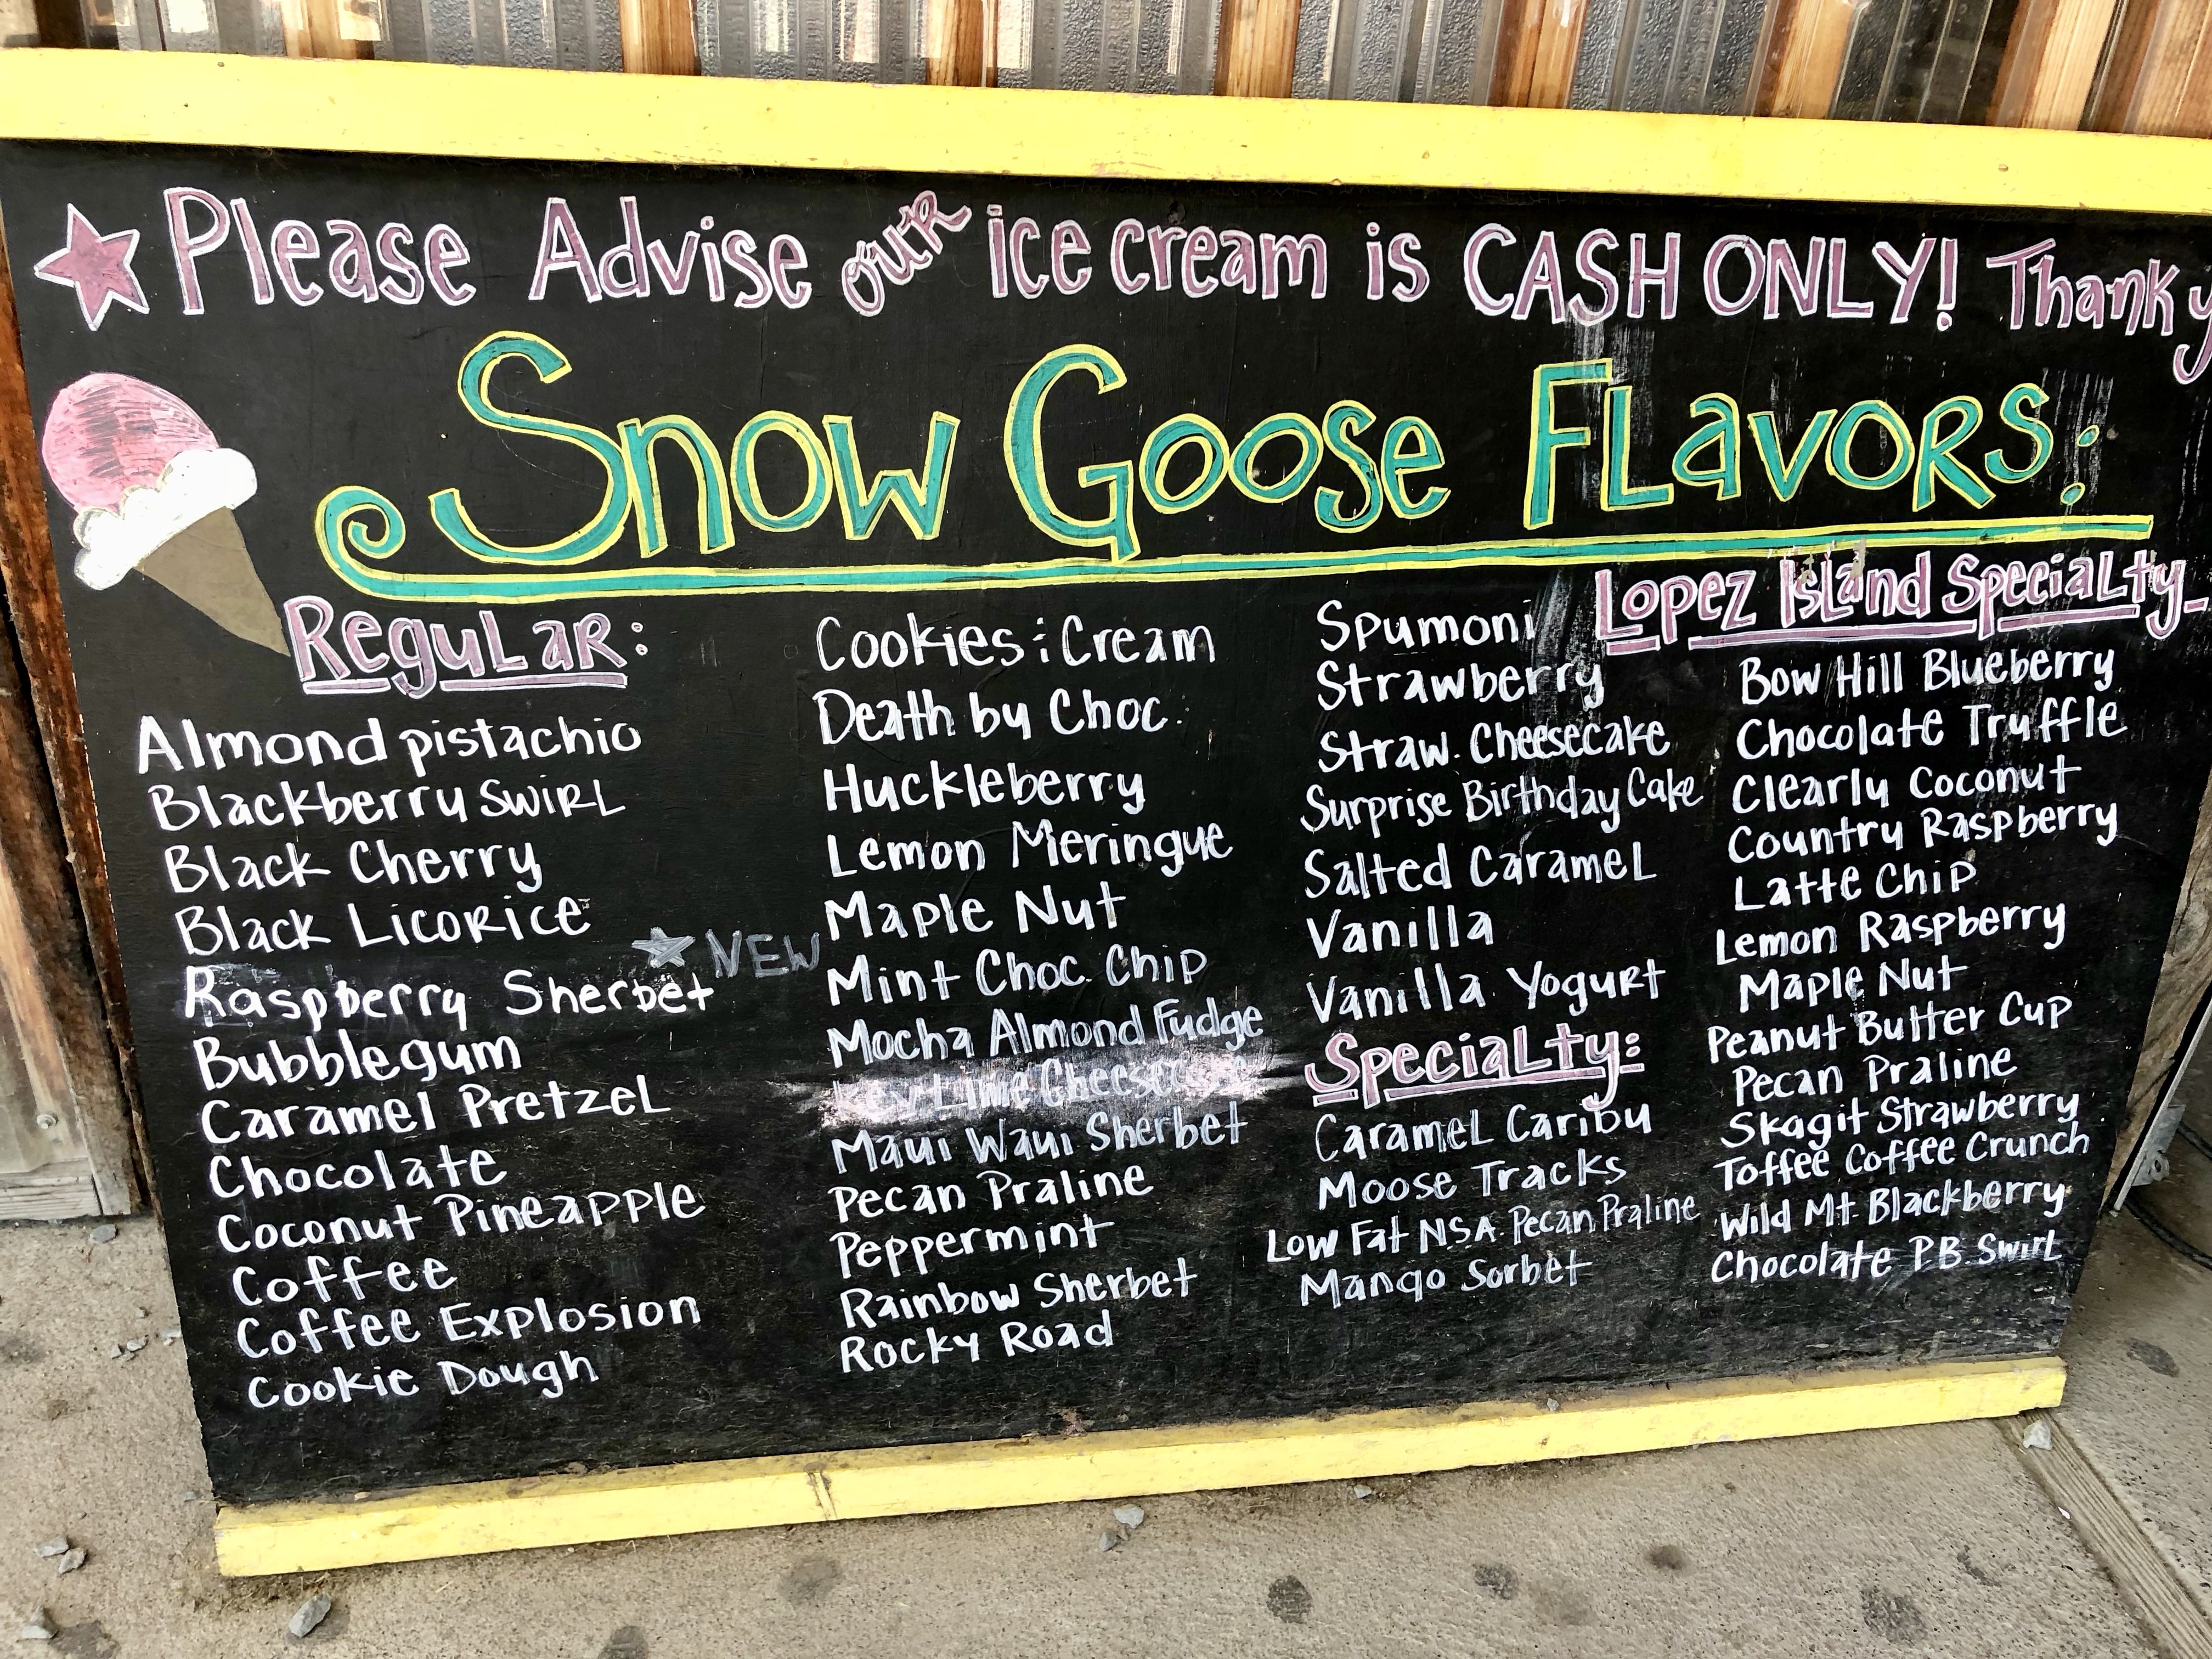 Please Advise our ice cream is CASH ONLY! Thank y
Snow Goose Flavors:
Regular:
Almond pistachio
Blackberry Swirl
Black Cherry
Black Licorice
Raspberry Sherbet
NEW
Bubblegum
Caramel Pretzel
Chocolate
Coconut Pineapple
Coffee
Coffee Explosion
Cookie Dough
Cookies & Cream
Death by Choc.
Huckleberry
Lemon Meringue
Maple Nut
Mint Choc. Chip
Mocha Almond Fudge
Key Lime
Maui Waui Sherbet
Pecan Praline
Peppermint
Rainbow Sherbet
Rocky Road
Spumoni
Strawberry
Straw. Cheesecake
Surprise Birthday Cake
Salted Caramel
Vanilla
Vanilla Yogurt
Specialty:
Caramel Caribu
Moose Tracks
Low Fat N.S.A. Pecan Praline
Mango Sorbet
Lopez Island Specialty
Bow Hill Blueberry
Chocolate Truffle
Clearly Coconut
Country Raspberry
Latte Chip
Lemon Raspberry
Maple Nut
Peanut Butter Cup
Pecan Praline
Skagit Strawberry
Toffee Coffee Crunch
Wild Mt. Blackberry
Chocolate P.B. Swirl